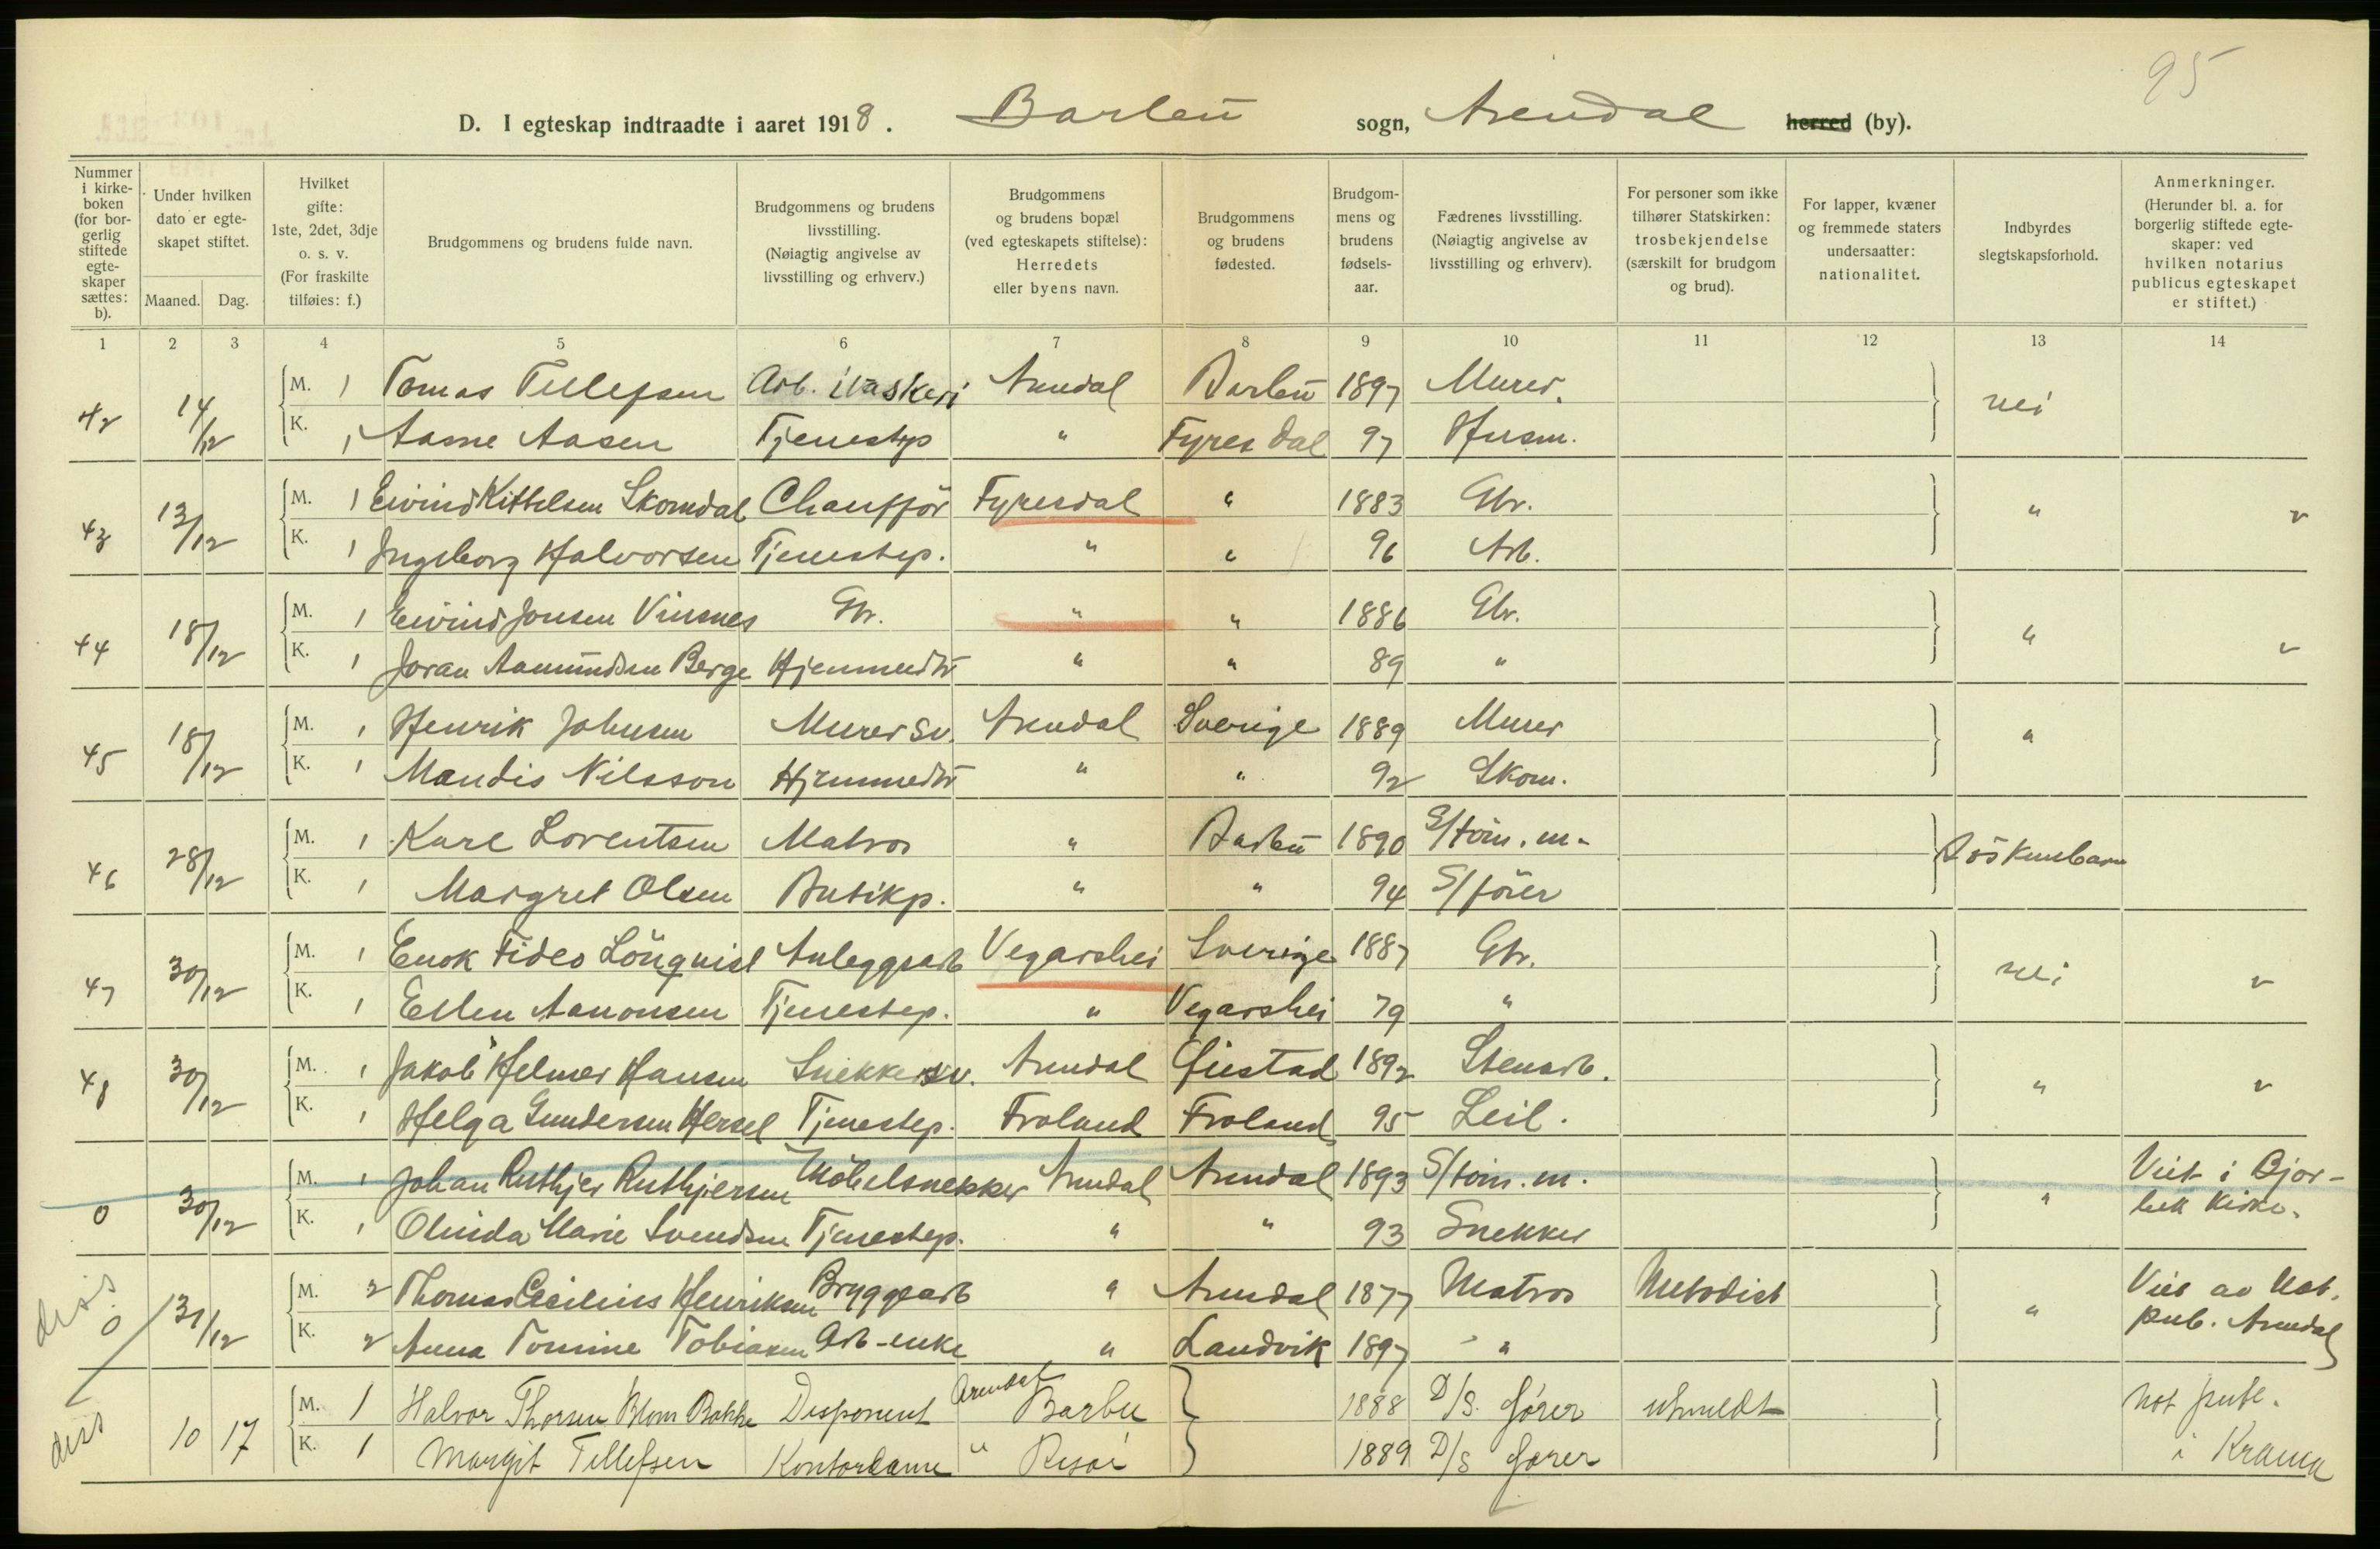 95
D. I egteskap indtraadte i aaret 1918. Barbu sogn, Arendal herred (by).
Nummer i kirke-boken (for bor-gerlig stiftede egte-skaper sættes: b).
Under hvilken dato er egte-skapet stiftet.
Maaned. Dag.
Hvilket gifte: 1ste, 2det, 3dje o. s. v. (For fraskilte tilføies: f.)
Brudgommens og brudens fulde navn.
Brudgommens og brudens livsstilling. (Nøiagtig angivelse av livsstilling og erhverv.)
Brudgommens og brudens bopæl (ved egteskapets stiftelse): Herredets eller byens navn.
Brudgommens og brudens fødested.
Brudgom-mens og brudens fødsels-aar.
Fædrenes livsstilling. (Nøiagtig angivelse av livsstilling og erhverv).
For personer som ikke tilhører Statskirken: trosbekjendelse (særskilt for brudgom og brud).
For lapper, kvæner og fremmede staters undersaatter: nationalitet.
Indbyrdes slegtskapsforhold.
Anmerkninger. (Herunder bl. a. for borgerlig stiftede egte-skaper: ved hvilken notarius publicus egteskapet er stiftet.)
1 2 3 4 5 6 7 8 9 10 11 12 13 14
42 14/12 M. 1 Tomas Tellefsen Arb. Arendal Barbu 1897 Murer. nei
K. 1 Aasne Aasen Tjenestep " Fyresdal 97 Husm.
43 13/12 M. 1 Eivind Kittelsen Skomdal Chaufför Fyresdal " 1883 Gbr. " v
K. 1 Ingeborg Halvorsen Tjenestep. " " 96 Arb.
44 18/12 M. 1 Eivind Jonsen Vinsnes Gbr. " " 1886 Gbr. " v
K. 1 Joran Aamundsen Berge Hjemmedtr " " 89 "
45 18/12 M. 1 Henrik Johnsen Murersv. Arendal Sverige 1889 Murer "
K. 1 Mandis Nilsson Hjemmedtr " " 92 Skom.
46 28/12 M. 1 Karl Lorentsen Matros " Barbu 1890 S/töm.m. Söskenbarn
K. 1 Margret Olsen Butikp. " " 94 S/förer
47 30/12 M. 1 Enok Fideo Lönquist Anleggsarb Vegarshei Sverige 1887 Gbr. nei v
K. 1 Ellen Aanonsen Tjenestep. " Vegarshei 79 "
48 30/12 M. 1 Jakob Helmer Hansen Snekkersv. Arendal Öiestad 1892 Stenarb. " v
K. 1 Helga Gundersen Hersel Tjenestep. Froland Froland 95 Leil.
0 30/12 M. 1 Johan Ruthjer Ruthjersen Möbelsnekker Arendal Arendal 1893 S/töm.m. " Viet i Bjor-
K. 1 Olinda Marie Svendsen Tjenestep. " " 93 Snekker bek kirke.
diss 0 31/12 M. 2 Thomas Cecilius Henriksen Bryggearb " Arendal 1877 Matros Metodist " Viet av Not.
K. 2 Anna Tomine Tobiasen Arb-enke " Landvik 1897 " pub. Arendal
diss 10 17 M. 1 Halvor Thorsen Blom Bakke Disponent Arendal Barbu 1888 D/S. fører utmeldt Not publ.
K. 1 Margit Tellefsen Kontordame " Risør 1889 D/S fører i Kragerø